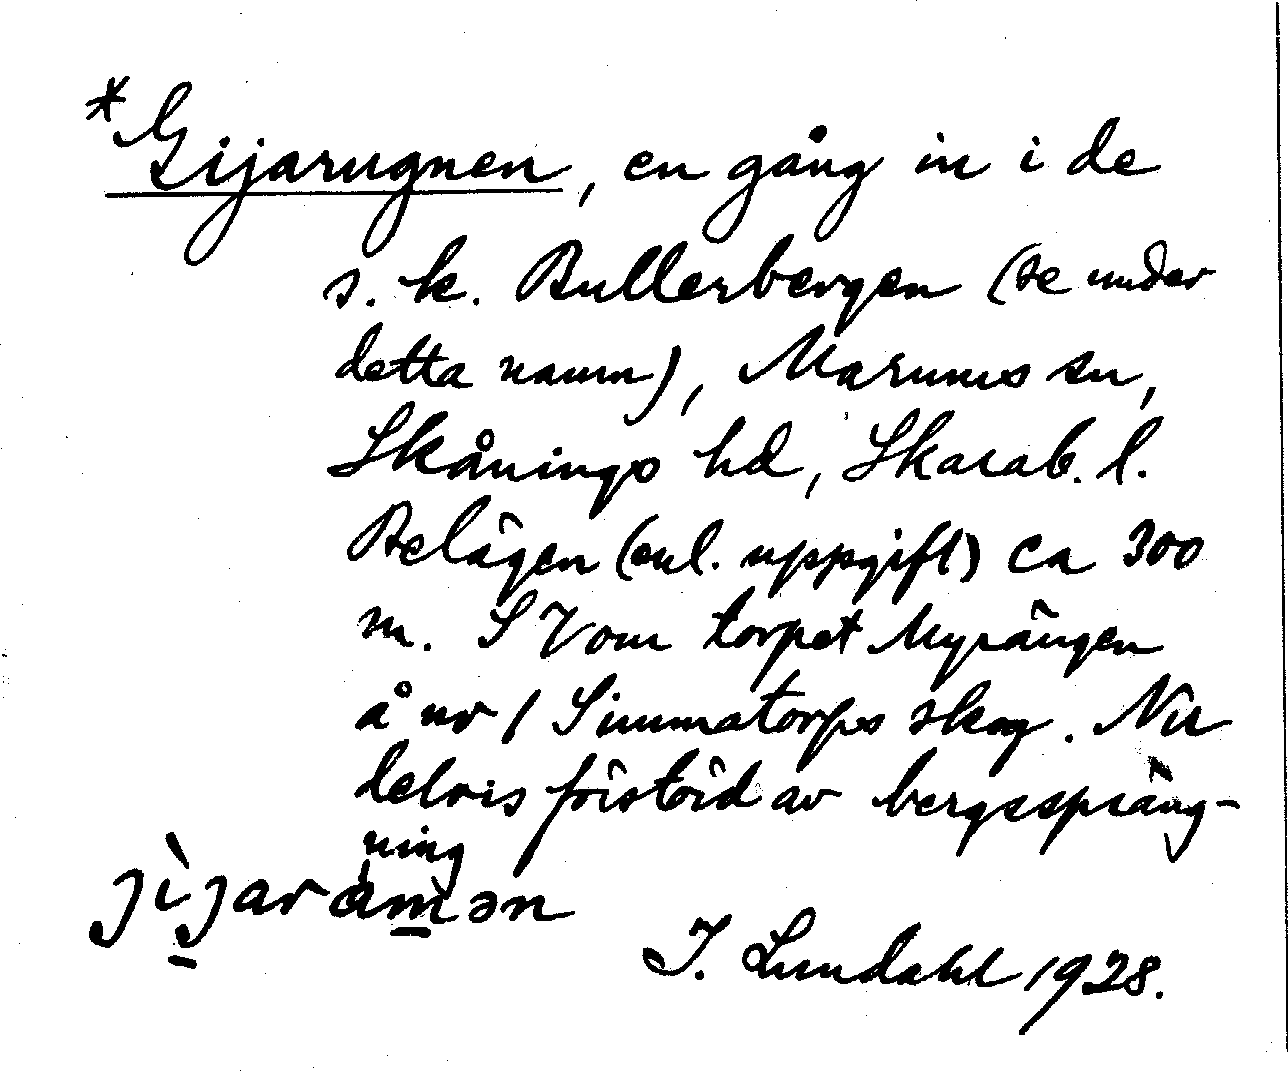 *Gijarugnen, en gång in i de
s. k. Bullerbergen (se under
detta namn), Marums sn,
Skånings hd, Skarab. l.
Belägen (enl. uppgift) ca 300
m. SV om torpet Myrängen
å nr 1 Simmatorps skog. Nu
delvis förstörd av bergsspräng-
ning
J. Lundahl 1928.